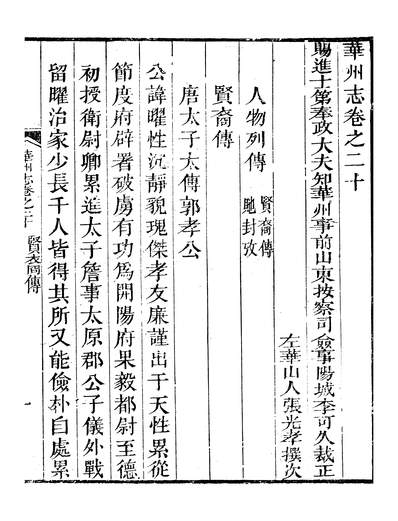 華州志卷之二十
賜進士第奉政大夫知華州事前山東按察司僉事陽城李可久裁正
左華山人張光孝撰次
人物列傳
賢裔傳
馳封攷
賢裔傳
唐太子太傅郭孝公
公諱曜性沉靜貌瑰傑孝友廉謹出于天性累從
節度府辟署破虜有功爲開陽府果毅都尉至德
初授衛尉卿累進太子詹事太原郡公子儀外戰
留曜治家少長千人皆得其所又能儉朴自處累
華州志卷之二十
賢裔傳
一